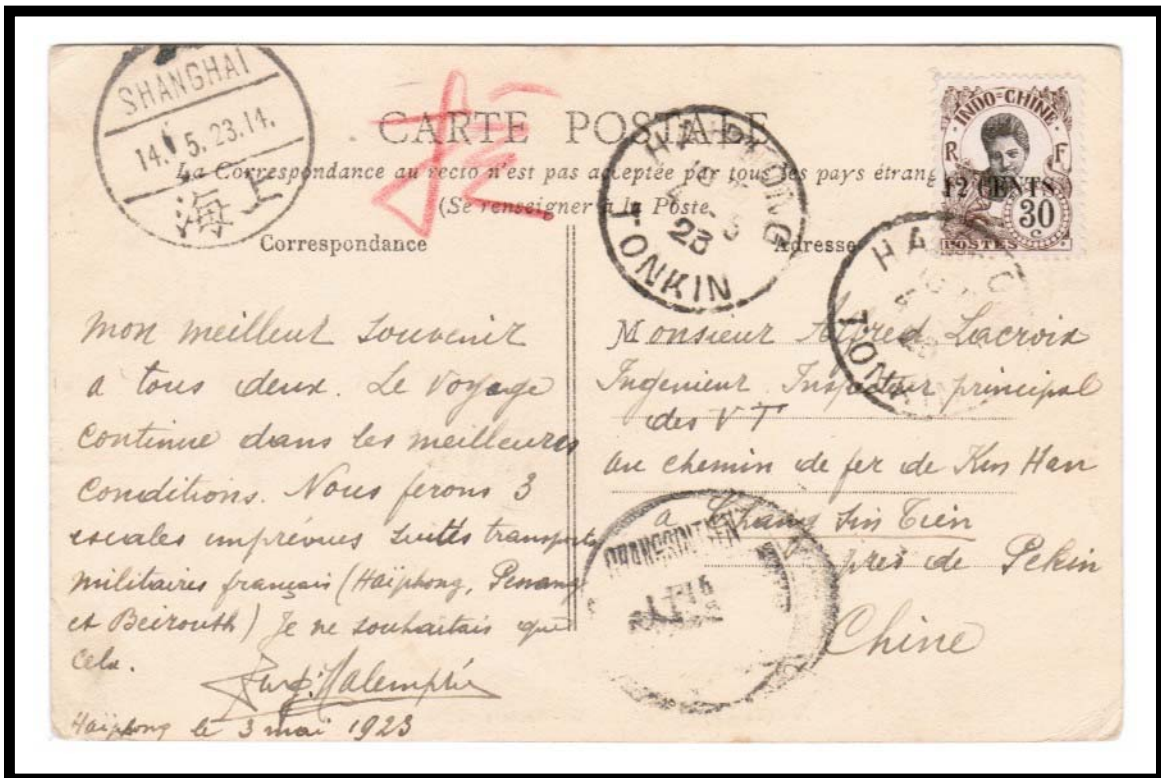 SHANGHAI
14. 5. 23. 14.
海上
CARTE POSTALE
La Correspondance au recto n'est pas acceptée par tous les pays étrang
(Se renseigner à la Poste
Correspondance
Adresse
INDO-CHINE
R F
12 CENTS
30
c
POSTES
HAIPHONG
23
TONKIN
HA
TONKIN
mon meilleur souvenir
a tous deux. Le voyage
continue dans les meilleures
conditions. Nous ferons 3
escales imprévues suites transports
militaires français (Haïphong, Penang
et Beirouth) Je ne souhaitais que
cela.
Haïphong le 3 mai 1923
Monsieur Alfred Lacroix
Ingenieur Inspecteur principal
des VT
au chemin de fer de Kin Han
a Chang Sin Tien
près de Pekin
Chine